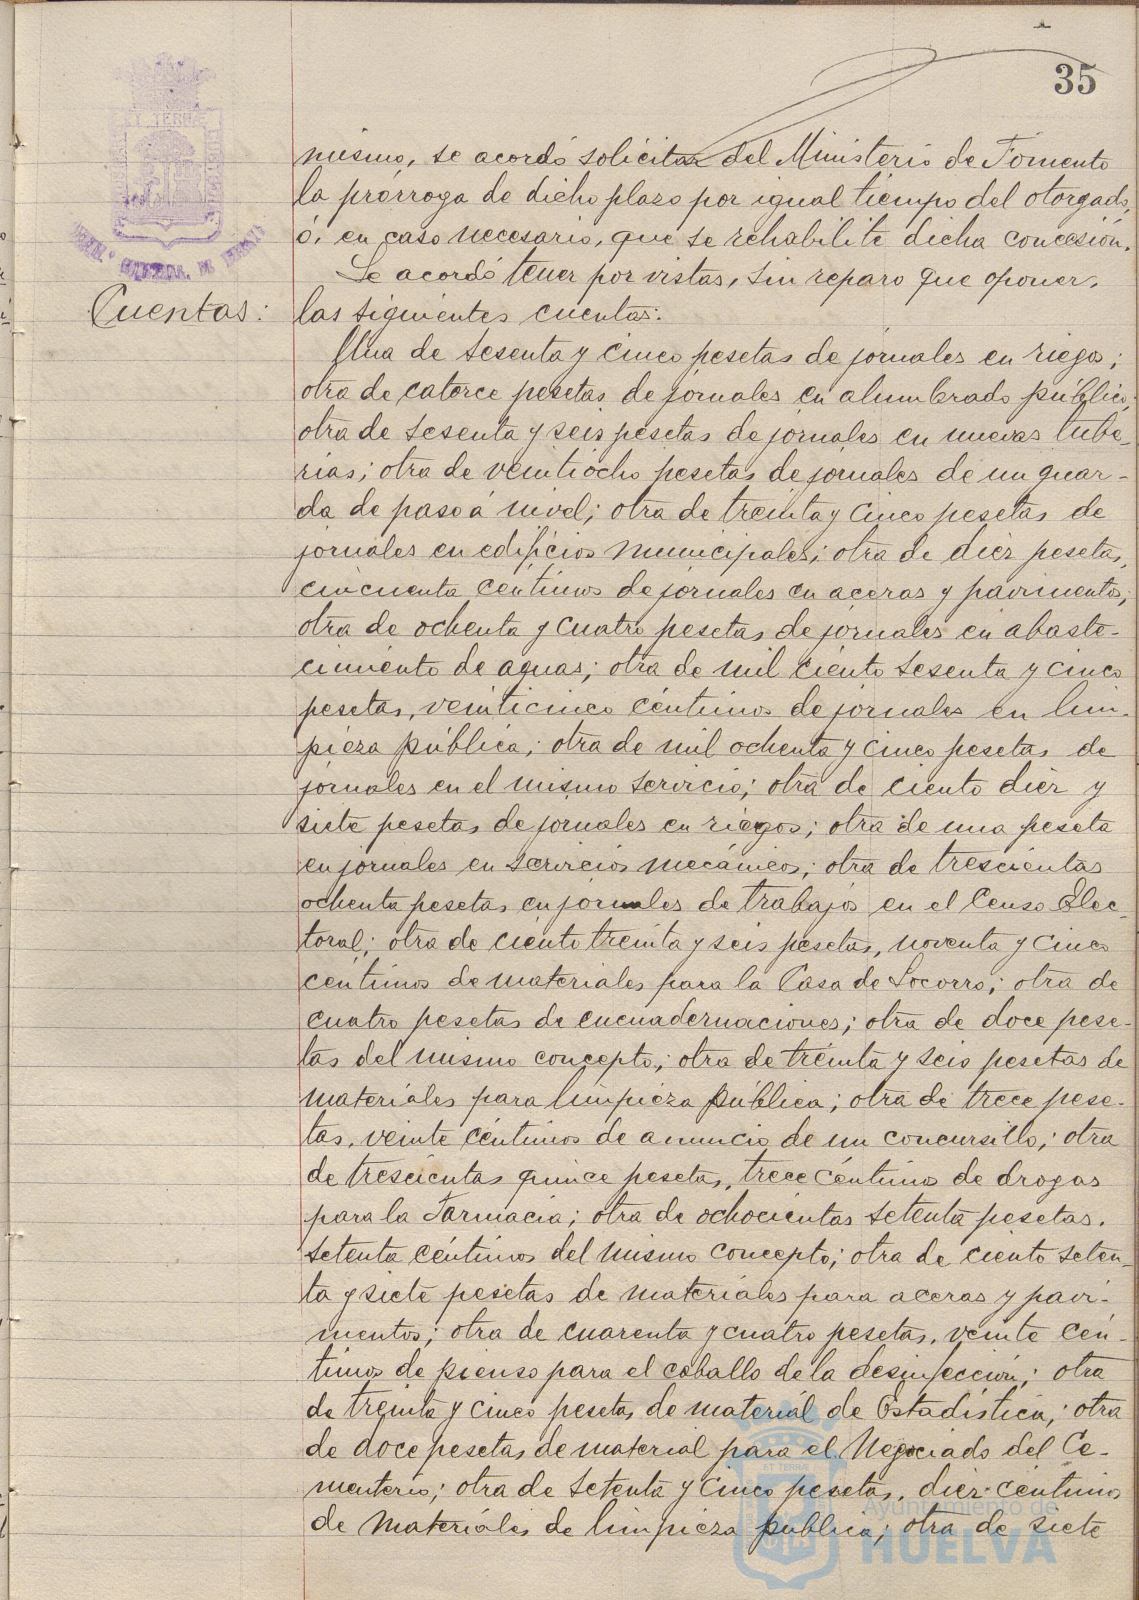 35
mismo, se acordó solicitar del Ministerio de Fomento
la prórroga de dicho plazo por igual tiempo del otorgado,
ó, en caso necesario, que se rehabilite dicha concesión.
Se acordó tener por vistas, sin reparo que oponer,
Cuentas: las siguientes cuentas:
Una de sesenta y cinco pesetas de jornales en riegos;
otra de catorce pesetas de jornales en alumbrado público;
otra de sesenta y seis pesetas de jornales en nuevas tube-
rías; otra de veintiocho pesetas de jornales de un guar-
da de paso á nivel; otra de treinta y cinco pesetas de
jornales en edificios municipales; otra de diez pesetas,
cincuenta céntimos de jornales en aceras y pavimentos;
otra de ochenta y cuatro pesetas de jornales en abaste-
cimiento de aguas; otra de mil ciento sesenta y cinco
pesetas, veinticinco céntimos de jornales en lim-
pieza pública; otra de mil ochenta y cinco pesetas de
jornales en el mismo servicio; otra de ciento diez y
siete pesetas de jornales en riegos; otra de una peseta
en jornales en servicios mecánicos; otra de trescientas
ochenta pesetas en jornales de trabajos en el Censo Elec-
toral; otra de ciento treinta y seis pesetas, noventa y cinco
céntimos de materiales para la Casa de Socorro; otra de
cuatro pesetas de encuadernaciones; otra de doce pese-
tas del mismo concepto; otra de treinta y seis pesetas de
materiales para limpieza pública; otra de trece pese-
tas, veinte céntimos de anuncio de un concursillo; otra
de trescientas quince pesetas, trece céntimos de drogas
para la Farmacia; otra de ochocientas setenta pesetas,
setenta céntimos del mismo concepto; otra de ciento seten-
ta y siete pesetas de materiales para aceras y pavi-
mentos; otra de cuarenta y cuatro pesetas, veinte cén-
timos de pienso para el caballo de la desinfección; otra
de treinta y cinco pesetas de material de Estadística; otra
de doce pesetas de material para el Negociado del Ce-
menterio; otra de setenta y cinco pesetas, diez céntimos
de materiales de limpieza pública; otra de siete
Ayuntamiento de
HUELVA